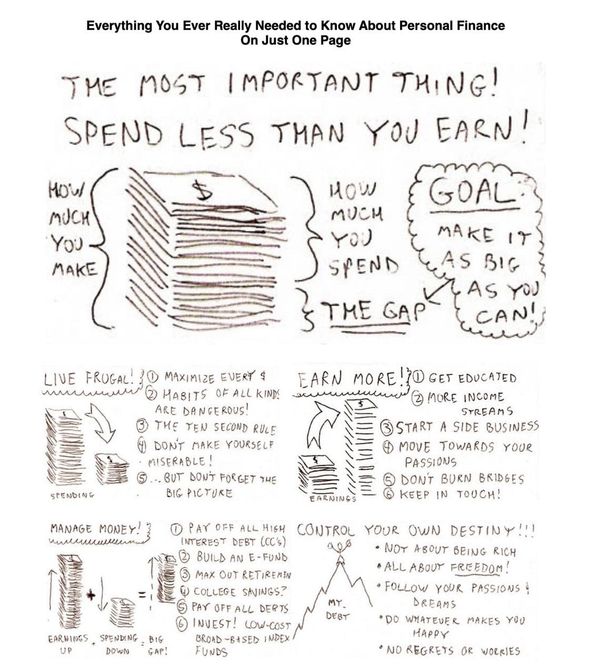 Everything You Ever Really Needed to Know About Personal Finance
On Just One Page
THE MOST IMPORTANT THING!
SPEND LESS THAN YOU EARN!
HOW
MUCH
YOU
MAKE
$
HOW
MUCH
YOU
SPEND
THE GAP
GOAL:
MAKE IT
AS BIG
AS YOU
CAN!
LIVE FRUGAL!
① MAXIMIZE EVERY $
② HABITS OF ALL KINDS
ARE DANGEROUS!
③ THE TEN SECOND RULE
④ DON'T MAKE YOURSELF
MISERABLE!
⑤ ...BUT DON'T FORGET THE
BIG PICTURE
$
$
SPENDING
EARN MORE!
① GET EDUCATED
② MORE INCOME
STREAMS
③ START A SIDE BUSINESS
④ MOVE TOWARDS YOUR
PASSIONS
⑤ DON'T BURN BRIDGES
⑥ KEEP IN TOUCH!
$
$
EARNINGS
MANAGE MONEY!
① PAY OFF ALL HIGH
INTEREST DEBT (CC'S)
② BUILD AN E-FUND
③ MAX OUT RETIREMEN
④ COLLEGE SAVINGS?
⑤ PAY OFF ALL DEBTS
⑥ INVEST! LOW-COST
BROAD-BASED INDEX
FUNDS
+
=
EARNINGS
UP
SPENDING
DOWN
BIG
GAP!
CONTROL YOUR OWN DESTINY!!!
• NOT ABOUT BEING RICH
• ALL ABOUT FREEDOM!
• FOLLOW YOUR PASSIONS &
DREAMS
• DO WHATEVER MAKES YOU
HAPPY
• NO REGRETS OR WORRIES
MY
DEBT